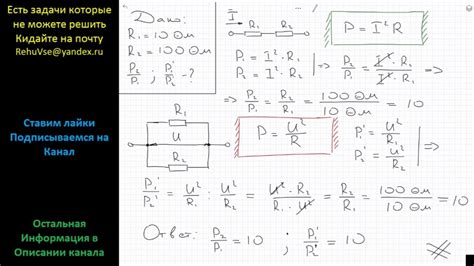 Есть задачи которые
не можете решить
Кидайте на почту
RehuVse@yandex.ru
Ставим лайки
Подписываемся на
Канал
Остальная
Информация в
Описании канала
Дано:
R₁ = 10 Ом
R₂ = 100 Ом
P₂/P₁ ; P₁'/P₂' - ?
I R₁ R₂
P = I² R
P₁ = I² · R₁
P₂ = I² · R₂
=> P₂/P₁ = I² · R₂ / I² · R₁ =>
=> P₂/P₁ = R₂/R₁ = 100 Ом / 10 Ом = 10
R₁
U
R₂
P = U²/R
P₁' = U²/R₁
P₂' = U²/R₂
=>
P₁'/P₂' = U²/R₁ : U²/R₂ = U² · R₂ / R₁ · U² = R₂/R₁ = 100 Ом / 10 Ом = 10
Ответ: P₂/P₁ = 10 ; P₁'/P₂' = 10